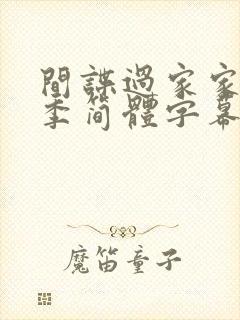 間諜過家家
季简體字幕
魔笛童子